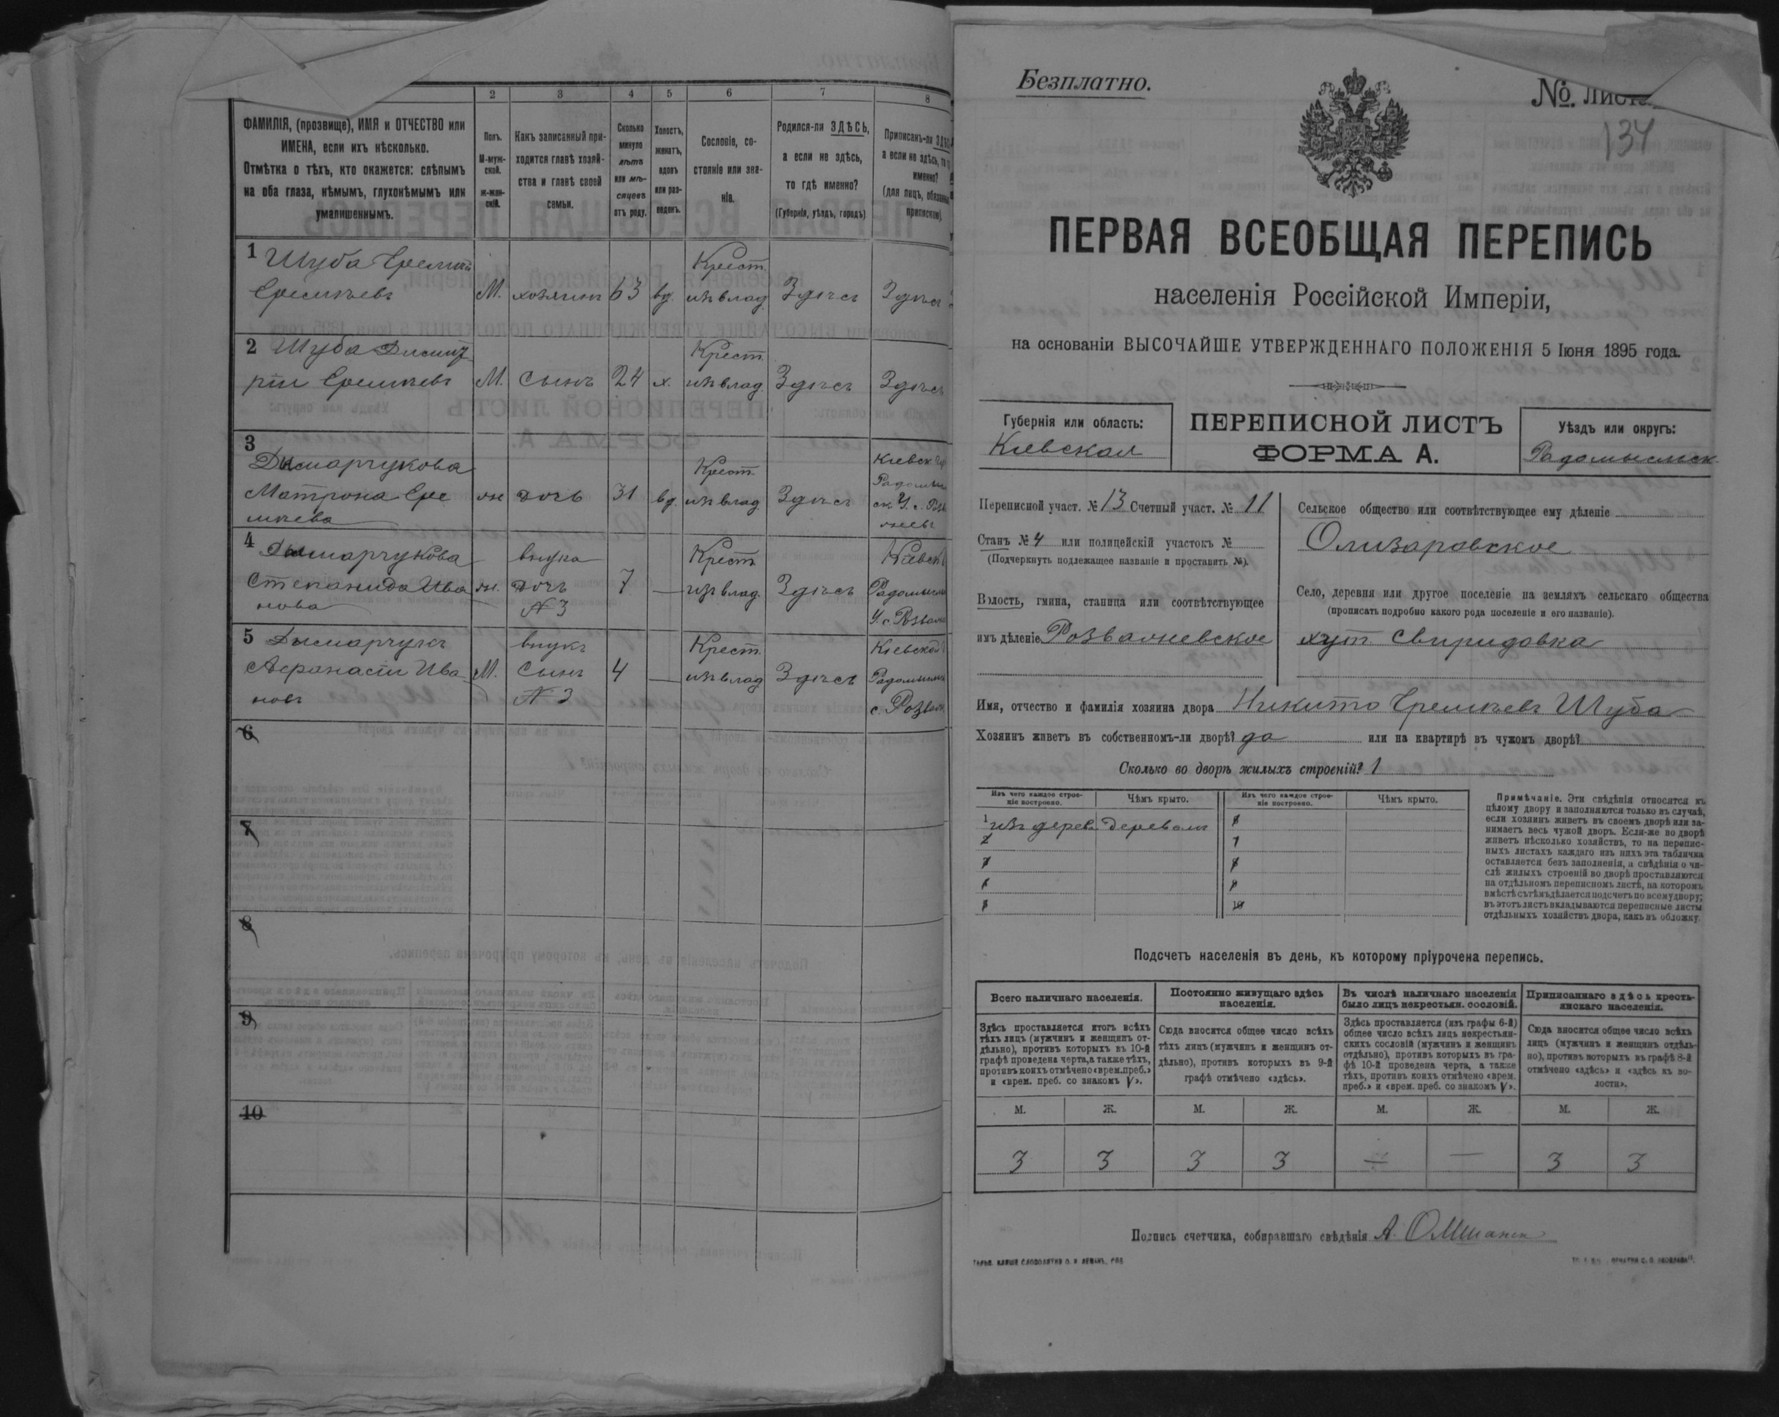 2 3 4 5 6 7 8
ФАМИЛІЯ, (прозвище), ИМЯ и ОТЧЕСТВО или
ИМЕНА, если ихъ нѣсколько.
Отмѣтка о тѣхъ, кто окажется: слѣпымъ
на оба глаза, нѣмымъ, глухонѣмымъ или
умалишеннымъ.
Полъ.
М-муж-
ской.
ж-жен-
скій.
Какъ записанный при-
ходится главѣ хозяй-
ства и главѣ своей
семьи.
Сколько
минуло
лѣтъ
или мѣ-
сяцевъ
отъ роду.
Холостъ,
женатъ,
вдовъ
или раз-
веденъ.
Сословіе, со-
стояніе или зва-
ніе.
Родился-ли ЗДѢСЬ,
а если не здѣсь,
то гдѣ именно?
(Губернія, уѣздъ, городъ)
Приписанъ-ли
а если не здѣсь, то
именно?
(для лицъ,
1 Шуба
Еремѣевъ М. хозяинъ 63 вд. Крест. изъ влад Здѣсь Здѣсь
2 Шуба Дмит
рій Еремѣевъ М. сынъ 24 х. Крест. изъ влад Здѣсь Здѣсь
3 Дымарчукова
Матрона Ере
мѣева ж. дочь 31 вд. Крест. изъ влад Здѣсь Кіевск Радомысл
4 Дымарчукова
Степанида Ива
нова ж. внука дочь №3 7 — Крестъ изъ влад. Здѣсь Кіевск Радомысл У. с. Розваж
5 Дымарчукъ
Афанасій Ива
новъ М. внукъ Сынъ №3 4 — Крест. изъ влад Здѣсь Кіевской Радомысл с. Розваж
6
7
8
9
10
Безплатно.
№ ЛИСТА
134
ПЕРВАЯ ВСЕОБЩАЯ ПЕРЕПИСЬ
населенія Россійской Имперіи,
на основаніи ВЫСОЧАЙШЕ УТВЕРЖДЕННАГО ПОЛОЖЕНІЯ 5 Іюня 1895 года.
Губернія или область:
Кіевская
ПЕРЕПИСНОЙ ЛИСТЪ
ФОРМА А.
Уѣздъ или округъ:
Радомысльск
Переписной участ. № 13 Счетный участ. № 11
Станъ № 4 или полицейскій участокъ №
(Подчеркнуть подлежащее названіе и проставить №).
Волость, гмина, станица или соотвѣтствующее
имъ дѣленіе Розважевское
Сельское общество или соотвѣтствующее ему дѣленіе
Олизаровское
Село, деревня или другое поселеніе на земляхъ сельскаго общества
(прописать подробно какого рода поселеніе и его названіе).
хут. Свиридовка
Имя, отчество и фамилія хозяина двора Никито Еремѣевъ Шуба
Хозяинъ живетъ въ собственномъ-ли дворѣ? да или на квартирѣ въ чужомъ дворѣ?
Сколько во дворѣ жилыхъ строеній? 1
Изъ чего каждое строе-
ніе построено.
Чѣмъ крыто.
Изъ чего каждое строе-
ніе построено.
Чѣмъ крыто.
1 изъ дерев. деревомъ
Примѣчаніе. Эти свѣдѣнія относятся къ
цѣлому двору и заполняются только въ случаѣ,
если хозяинъ живетъ въ своемъ дворѣ или за-
нимаетъ весь чужой дворъ. Если-же во дворѣ
живетъ нѣсколько хозяйствъ, то на перепис-
ныхъ листахъ каждаго изъ нихъ эта табличка
оставляется безъ заполненія, а свѣдѣнія о чи-
слѣ жилыхъ строеній во дворѣ проставляются
на отдѣльномъ переписномъ листѣ, на которомъ
вмѣстѣ съ тѣмъ дѣлается подсчетъ по всему двору;
въ этотъ листъ вкладываются переписные листы
отдѣльныхъ хозяйствъ двора, какъ въ обложку.
Подсчетъ населенія въ день, къ которому пріурочена перепись.
Всего наличнаго населенія.
Постоянно живущаго здѣсь
населенія.
Въ числѣ наличнаго населенія
было лицъ некрестьян. сословій.
Приписаннаго здѣсь кресть-
янскаго населенія.
Здѣсь проставляется итогъ всѣхъ
тѣхъ лицъ (мужчинъ и женщинъ от-
дѣльно), противъ которыхъ въ 10-й
графѣ проведена черта, а также тѣхъ,
противъ коихъ отмѣчено «врем. преб.»
и «врем. преб. со знакомъ V».
Сюда вносится общее число всѣхъ
тѣхъ лицъ (мужчинъ и женщинъ от-
дѣльно), противъ которыхъ въ 9-й
графѣ отмѣчено «здѣсь».
Здѣсь проставляется (изъ графы 6-й)
общее число всѣхъ лицъ некрестьян-
скихъ сословій (мужчинъ и женщинъ
отдѣльно), противъ которыхъ въ гра-
фѣ 10-й проведена черта, а также
тѣхъ, противъ коихъ отмѣчено «врем.
преб.» и «врем. преб. со знакомъ V».
Сюда вносится общее число всѣхъ
лицъ (мужчинъ и женщинъ отдѣль-
но), противъ которыхъ въ графѣ 8-й
отмѣчено «здѣсь» и «здѣсь въ во-
лости».
М. Ж. М. Ж. М. Ж. М. Ж.
3 3 3 3 — — 3 3
Подпись счетчика, собиравшаго свѣдѣнія А.